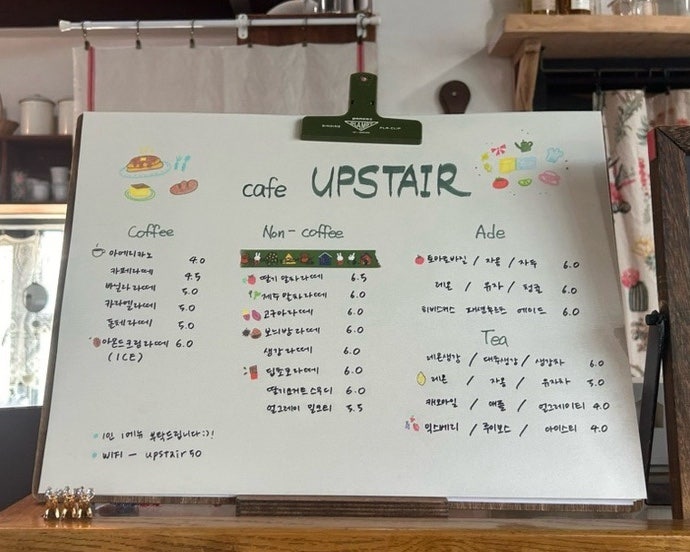 cafe UPSTAIR
Coffee
아메리카노 4.0
카페라떼 4.5
바닐라라떼 5.0
카라멜라떼 5.0
돌체라떼 5.0
아몬드크림라떼 6.0
(ICE)
Non-coffee
딸기말차라떼 6.5
제주말차라떼 6.0
고구마라떼 6.0
보늬밤라떼 6.0
생강라떼 6.0
딥초코라떼 6.0
딸기요거트스무디 6.0
얼그레이 밀크티 5.5
Ade
토마토바질 / 자몽 / 자두 6.0
레몬 / 유자 / 청귤 6.0
히비스커스 에이드 6.0
Tea
레몬생강 / 대추생강 / 생강차 6.0
레몬 / 자몽 / 유자차 5.0
캐모마일 / 애플 / 얼그레이티 4.0
믹스베리 / 루이보스 / 아이스티 4.0
1인 1메뉴 부탁드립니다:)!
WIFI - upstair50